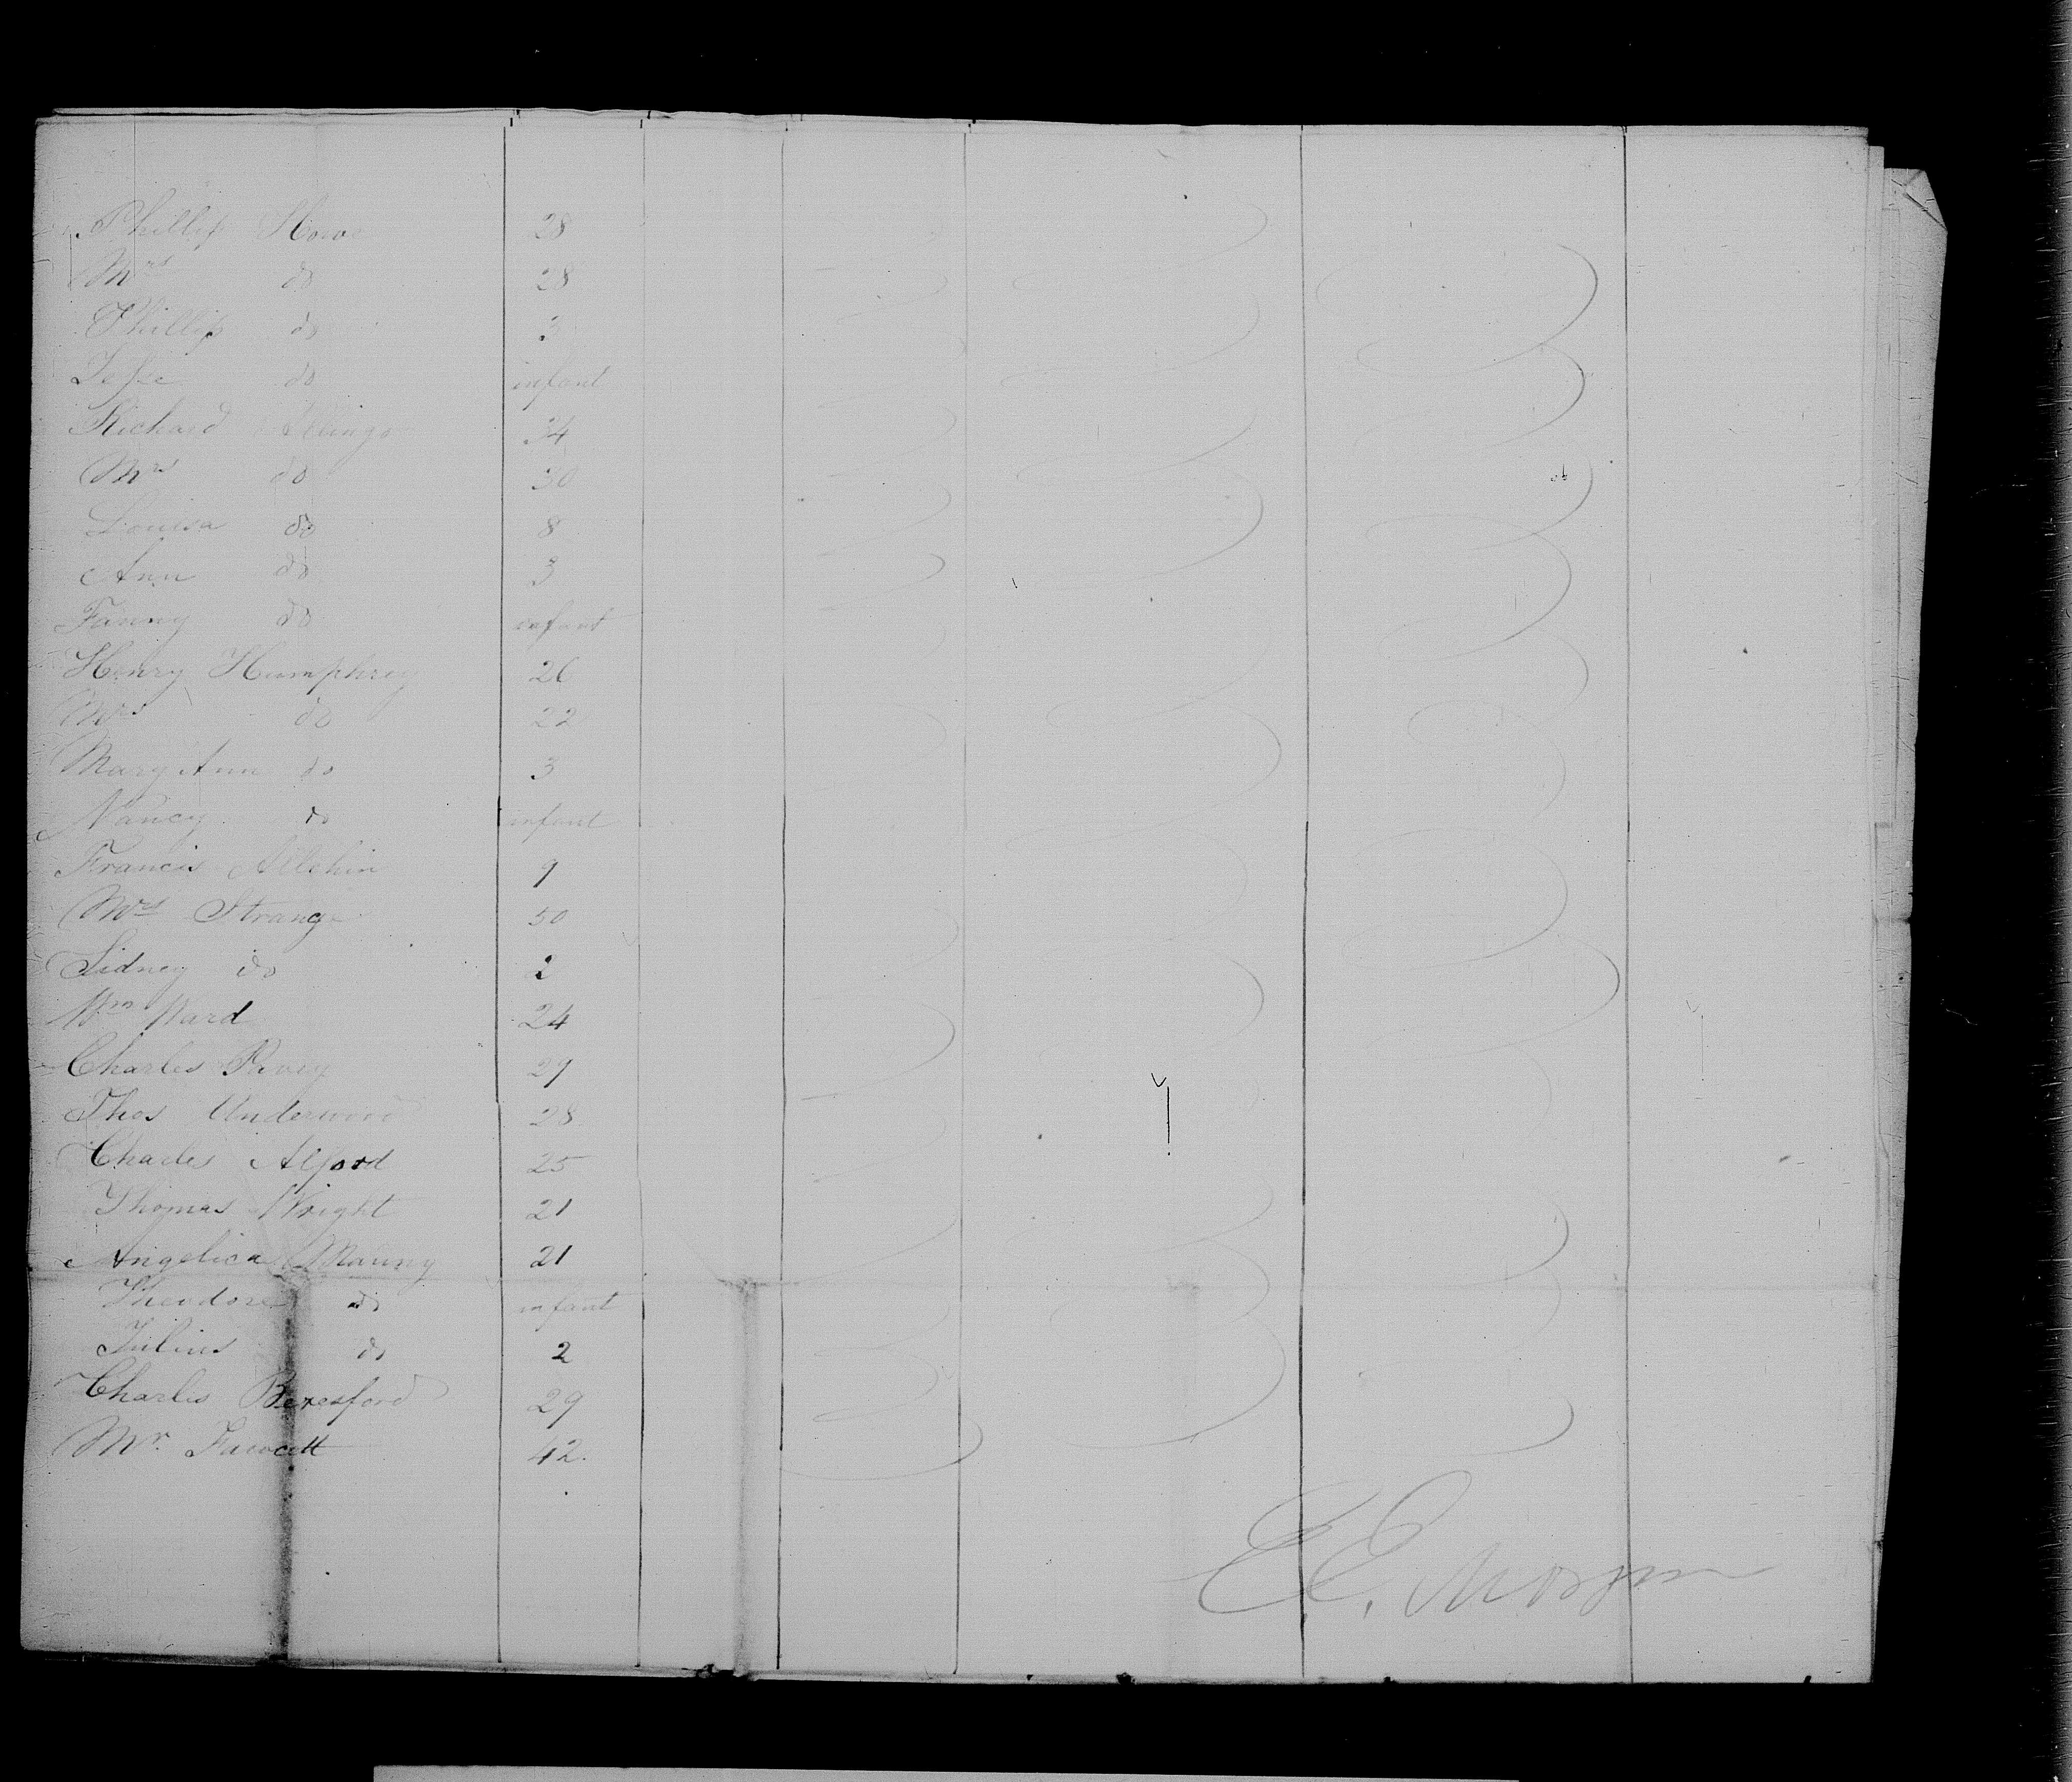 Phillip Howe 28
Mrs do 28
Phillip do 3
Jesse do infant
Richard 34
Mrs do 30
Louisa do 8
Ann do 3
Fanny do infant
Henry Humphrey 26
Mrs do 22
Mary Ann do 3
Nancy do infant
Francis Allchin 9
Mrs Strange 50
Sidney do 2
Wm Ward 24
Charles Pavey 29
Thos Underwood 28
Charles Alford 25
Thomas Wright 21
Angelica Mauny 21
Theodore do infant
Julius do 2
Charles Beresford 29
Mr. Fawcett 42.
E E. Morgan